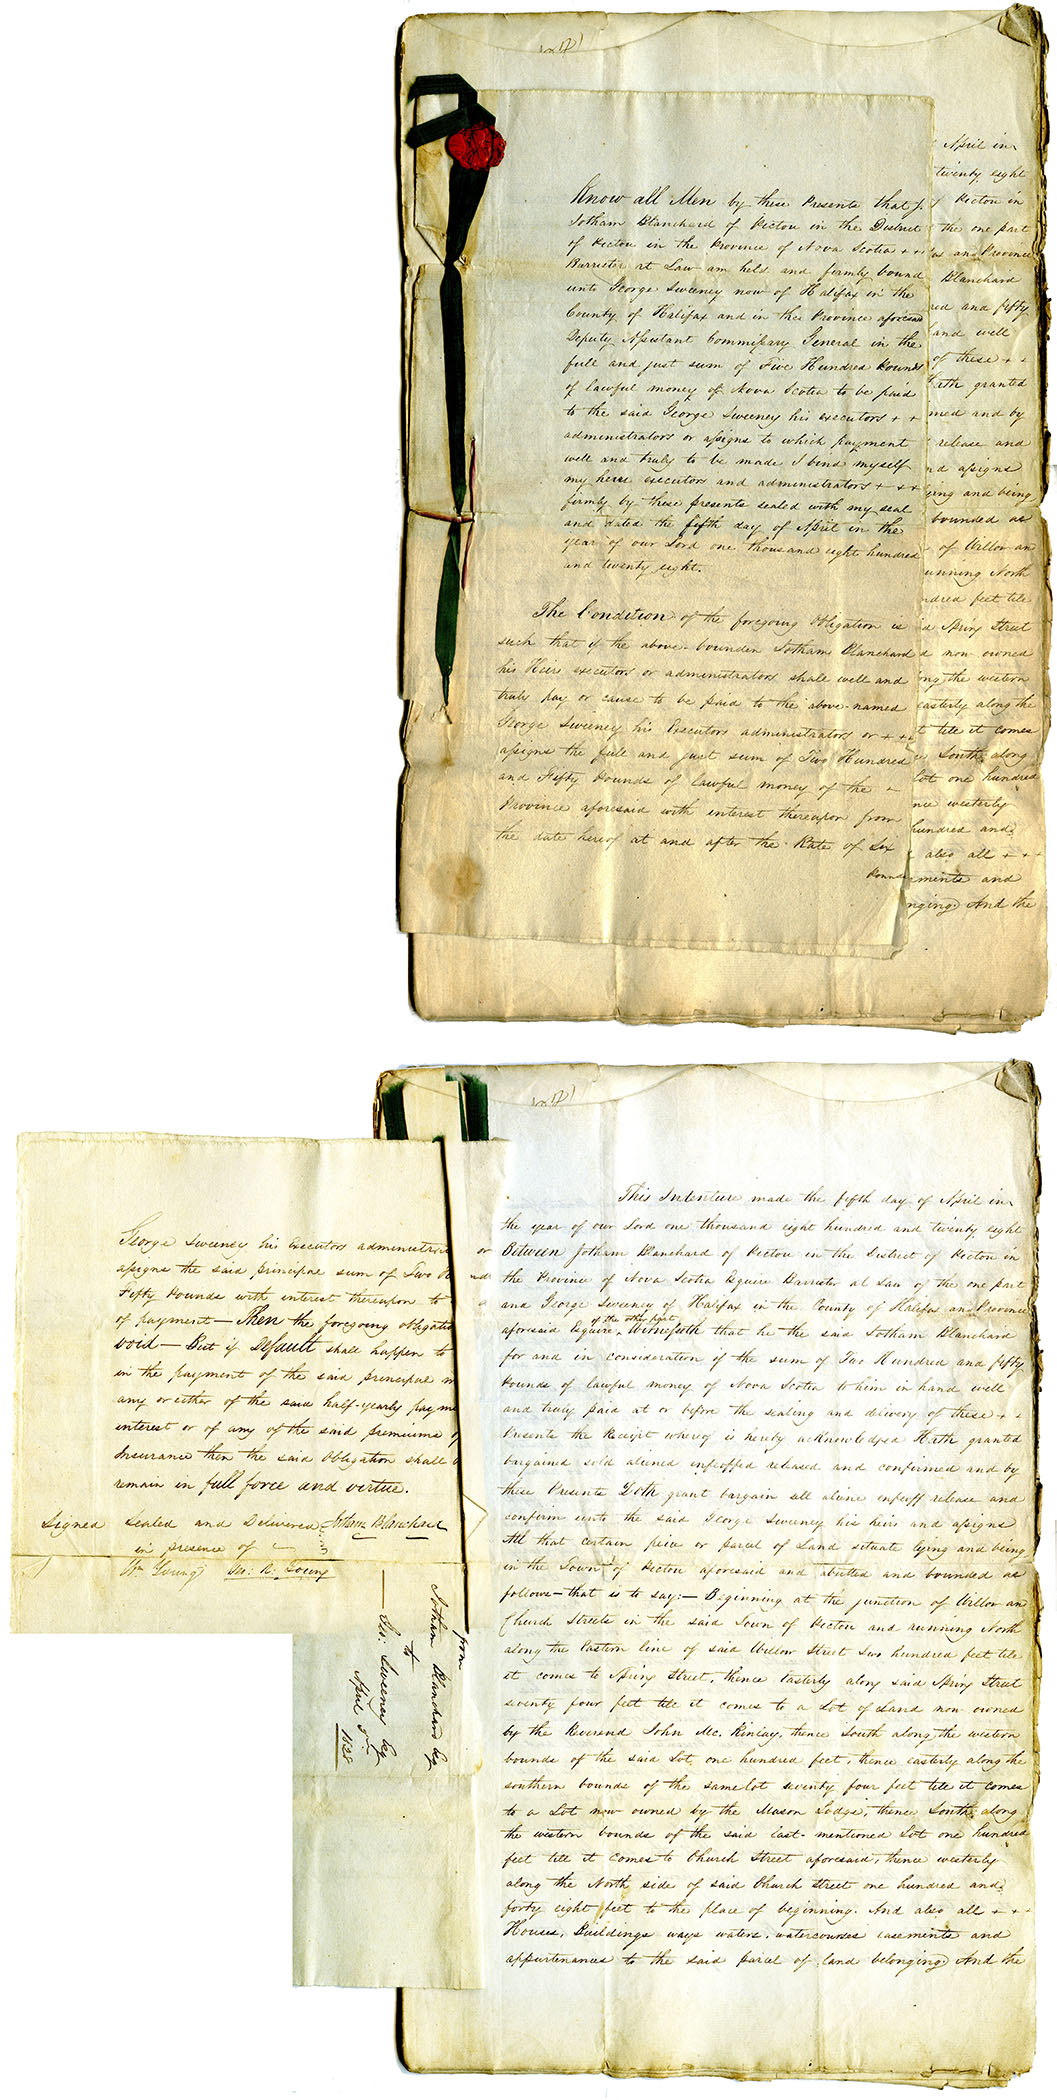 Know all Men by these Presents that I.
Jotham Blanchard of Pictou in the District
of Pictou in the Province of Nova Scotia + +
Barrister at Law am held and firmly bound
unto George Sweeney now of Halifax in the
County of Halifax and in the Province aforesaid
Deputy Assistant Commissary General in the
full and just sum of Five Hundred Pounds
of lawful money of Nova Scotia to be paid
to the said George Sweeney his executors + +
administrators or assigns to which payment
well and truly to be made I bind myself
my heirs executors and administrators + + +
firmly by these presents sealed with my seal
and dated the fifth day of April in the
year of our Lord one thousand eight hundred
and twenty eight.
The Condition of the foregoing Obligation is
such that if the above-bounden Jotham Blanchard
his Heirs executors or administrators shall well and
truly pay or cause to be paid to the above-named
George Sweeney his Executors administrators or + +
assigns the full and just sum of Two Hundred
and Fifty Pounds of lawful money of the +
Province aforesaid with interest thereupon from
the date hereof at and after the Rate of Six
Pounds
April in
twenty eight
Pictou in
the one part
and Province
Blanchard
red and fifty
and well
of these + +
Hath granted
med and by
release and
nd assigns
ing and being
bounded as
of Willow an
unning North
ndred feet till
id Spring Street
d now owned
ong the western
easterly along the
t till it comes
South along
Lot one hundred
nce westerly
hundred and
also all + + +
ements and
nging. And the
George Sweeney his Executors administrators or
assigns the said principal sum of Two H nd
Fifty Pounds with interest thereupon to
of payment — Then the foregoing obligatio
void — But if Default shall happen to
in the payment of the said principal m
any or either of the said half-yearly payme
interest or of any of the said premiums
Insurance then the said Obligation shall
remain in full force and virtue.
Signed Sealed and Delivered Jotham Blanchard
in presence of
Wm Young Geo: R. Young
from
Jotham Blanchard Esq
to
Geo: Sweeney Esq
April 5th
1828
This Indenture made the fifth day of April in
the year of our Lord one thousand eight hundred and twenty eight
Between Jotham Blanchard of Pictou in the District of Pictou in
the Province of Nova Scotia Esquire Barrister at Law of the one part
and George Sweeney of Halifax in the County of Halifax and Province
of the other part
aforesaid Esquire, Witnesseth that he the said Jotham Blanchard
for and in consideration of the sum of Two Hundred and fifty
Pounds of lawful money of Nova Scotia to him in hand well
and truly paid at or before the sealing and delivery of these + +
Presents the Receipt whereof is hereby acknowledged Hath granted
bargained sold aliened enfeoffed released and confirmed and by
these Presents Doth grant bargain sell aliene enfeoff release and
confirm unto the said George Sweeney his heirs and assigns
All that certain peice or parcel of Land situate lying and being
in the Town of Pictou aforesaid and abutted and bounded as
follows — that is to say: — Beginning at the junction of Willow an
Church Streets in the said Town of Pictou and running North
along the Eastern line of said Willow Street two hundred feet till
it comes to Spring Street, thence Easterly along said Spring Street
seventy four feet till it comes to a Lot of Land now owned
by the Reverend John Mc.Kinlay, thence South along the western
bounds of the said Lot one hundred feet, thence easterly along the
southern bounds of the same lot seventy four feet till it comes
to a Lot now owned by the Mason Lodge, thence South along
the western bounds of the said last-mentioned Lot one hundred
feet till it comes to Church Street aforesaid, thence westerly
along the North side of said Church Street one hundred and
forty eight feet to the place of beginning. And also all + + +
Houses, Buildings ways waters, watercourses easements and
appurtenances to the said parcel of land belonging. And the